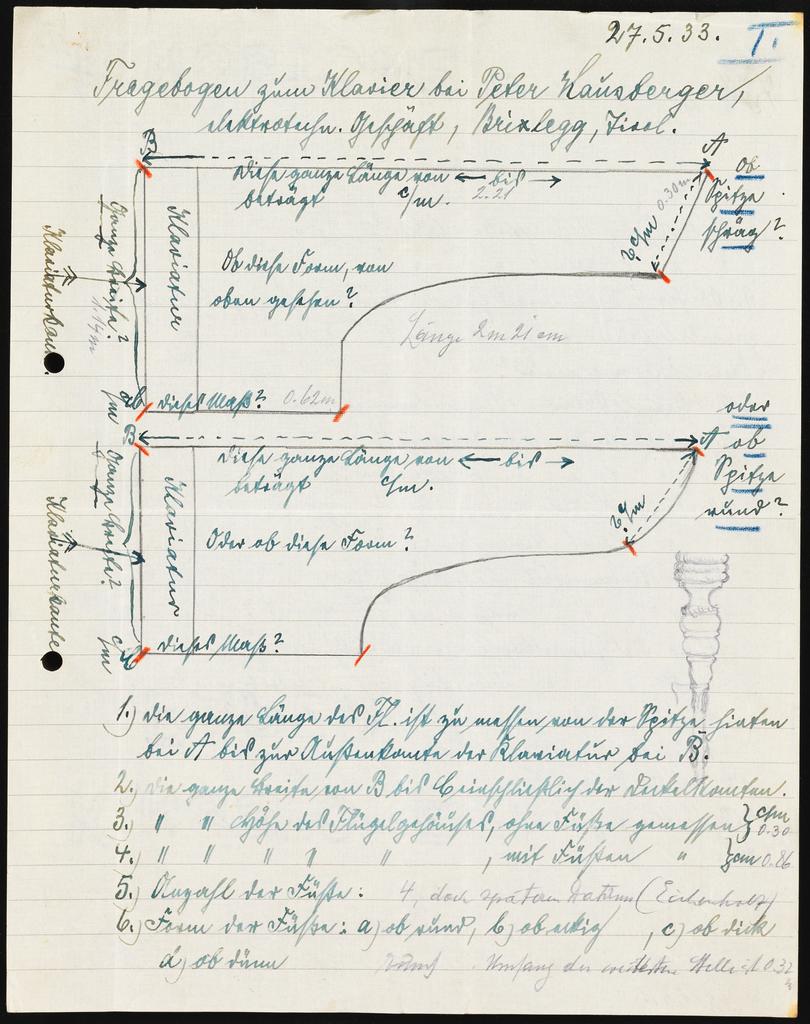 27.5.33. I.
Fragebogen zum Klavier bei Peter Hausberger,
elektrotechn. Geschäft, Brixlegg, Tirol.
B
A
Diese ganze Länge von ← bis →
beträgt c/m. 2.21
Ob
Spitze
schräg?
? c/m 0.30m
Klaviaturkan
Ganze Breite?
1.14m
c/m
Klaviatur
Ob diese Form, von
oben gesehen?
Länge 2m 21 cm
dieses Maß? 0.62m
B
A
oder
ob
Spitze
rund?
Diese ganze Länge von ← bis →
beträgt c/m.
? c/m
Klaviaturkante
Ganze Breite?
c/m
Klaviatur
Oder ob diese Form?
dieses Maß?
1.) Die ganze Länge des Fl. ist zu messen von der Spitze hinten
bei A bis zur Außenkante der Klaviatur bei B.
2.) Die ganze Breite von B bis C einschließlich der Deckelkanten.
3.) " " Höhe des Flügelgehäuses, ohne Füße gemessen } c/m 0.30
4.) " " " " " , mit Füßen " } cm 0.86
5.) Anzahl der Füße: 4, doch späteren Datums (Eichenholz)
6.) Form der Füße: a) ob rund, b) ob eckig, c) ob dick
d) ob dünn rund Umfang der weitesten Stelle ist 0.32